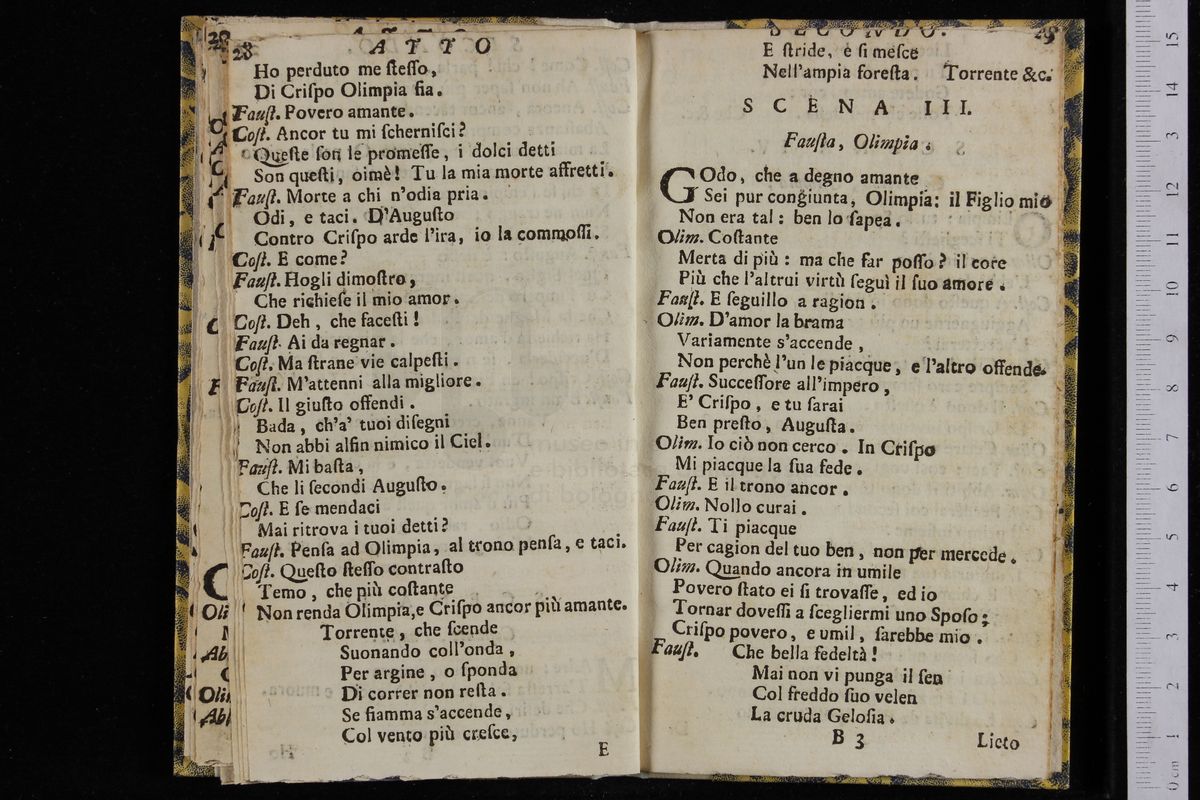 28 ATTO
Ho perduto me ſteſſo,
Di Criſpo Olimpia ſia.
Fauſt. Povero amante.
Coſt. Ancor tu mi ſcherniſci?
Queſte ſon le promeſſe, i dolci detti
Son queſti, oimè! Tu la mia morte affretti.
Fauſt. Morte a chi n'odia pria.
Odi, e taci. D'Auguſto
Contro Criſpo arde l'ira, io la commoſſi.
Coſt. E come?
Fauſt. Hogli dimoſtro,
Che richieſe il mio amor.
Coſt. Deh, che faceſti!
Fauſt. Ai da regnar.
Coſt. Ma ſtrane vie calpeſti.
Fauſt. M'attenni alla migliore.
Coſt. Il giuſto offendi.
Bada, ch'a' tuoi diſegni
Non abbi alfin nimico il Ciel.
Fauſt. Mi baſta,
Che li ſecondi Auguſto.
Coſt. E ſe mendaci
Mai ritrova i tuoi detti?
Fauſt. Penſa ad Olimpia, al trono penſa, e taci.
Coſt. Queſto ſteſſo contraſto
Temo, che più coſtante
Non renda Olimpia, e Criſpo ancor più amante.
Torrente, che ſcende
Suonando coll'onda,
Per argine, o ſponda
Di correr non reſta.
Se fiamma s'accende,
Col vento più creſce,
E
SECONDO.
E ſtride, e ſi meſce
Nell'ampia foreſta. Torrente &c.
SCENA III.
Fauſta, Olimpia.
GOdo, che a degno amante
Sei pur congiunta, Olimpia: il Figlio mio
Non era tal: ben lo ſapea.
Olim. Coſtante
Merta di più: ma che far poſſo? il core
Più che l'altrui virtù ſeguì il ſuo amore.
Fauſt. E ſeguillo a ragion.
Olim. D'amor la brama
Variamente s'accende,
Non perchè l'un le piacque, e l'altro offende.
Fauſt. Succeſſore all'impero,
E' Criſpo, e tu ſarai
Ben preſto, Auguſta.
Olim. Io ciò non cerco. In Criſpo
Mi piacque la ſua fede.
Fauſt. E il trono ancor.
Olim. Nollo curai.
Fauſt. Ti piacque
Per cagion del tuo ben, non per mercede.
Olim. Quando ancora in umile
Povero ſtato ei ſi trovaſſe, ed io
Tornar doveſſi a ſcegliermi uno Spoſo;
Criſpo povero, e umil, ſarebbe mio.
Fauſt. Che bella fedeltà!
Mai non vi punga il ſen
Col freddo ſuo velen
La cruda Geloſia.
B 3 Lieto